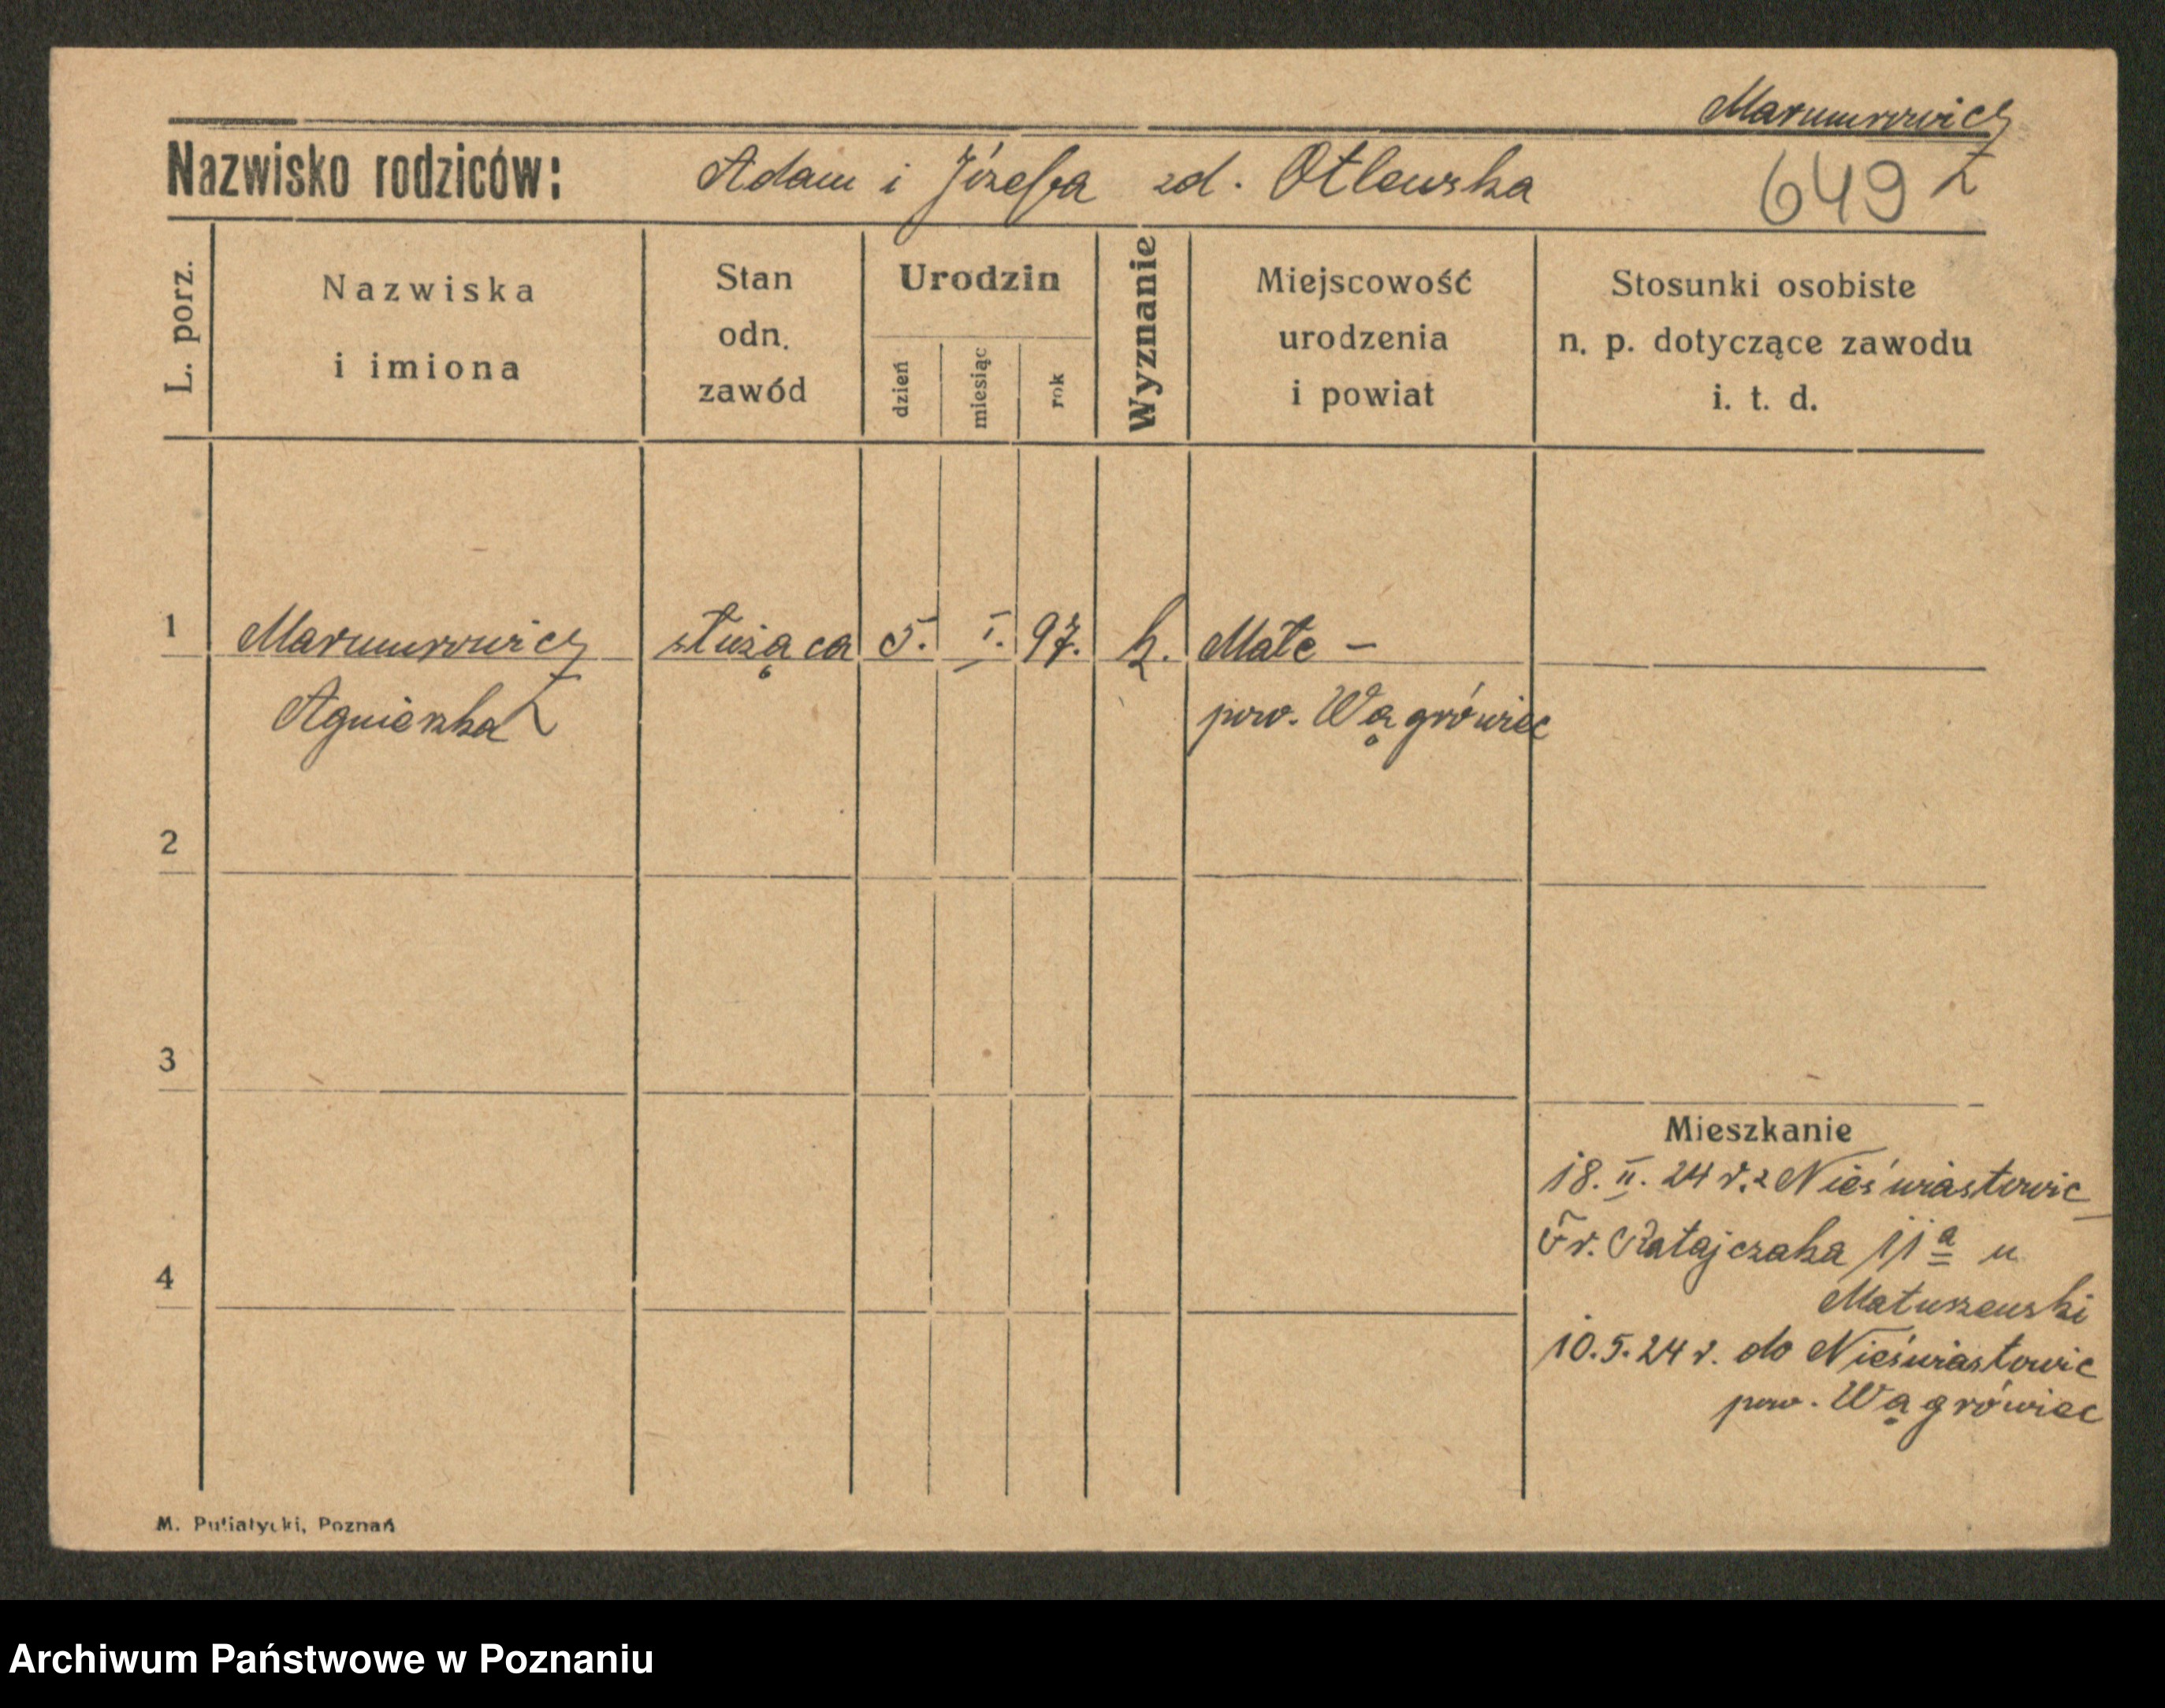 Marumrowicz
Nazwisko rodziców: Adam i Józefa zd. Otlewska 649
L. porz.
Nazwiska
i imiona
Stan
odn.
zawód
Urodzin
dzień
miesiąc
rok
Wyznanie
Miejscowość
urodzenia
i powiat
Stosunki osobiste
n. p. dotyczące zawodu
i. t. d.
1 Marumrowicz służąca 5. I. 97. k. Małe -
Agnieszka pow. Wągrówiec
2
3
4
Mieszkanie
18. II. 24 r. z Nieświastowic
Fr. Ratajczaka 11 a u
Matuszewski
10.5.24 r. do Nieświastowic
pow. Wągrówiec
M. Putiatycki, Poznań
Archiwum Państwowe w Poznaniu